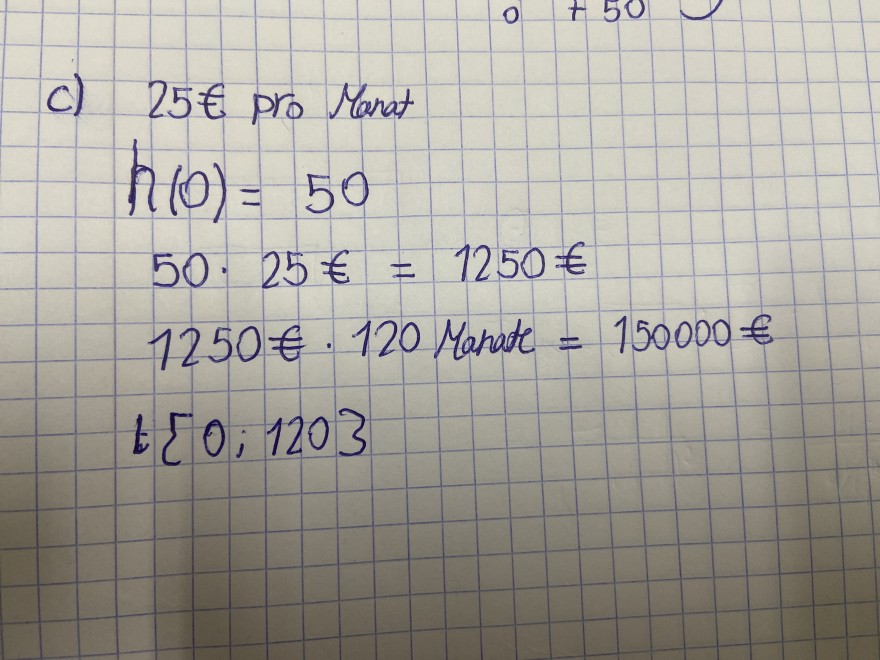 0 + 50
c) 25€ pro Monat
h(0) = 50
50 · 25€ = 1250€
1250€ · 120 Monate = 150000€
t[0; 120]